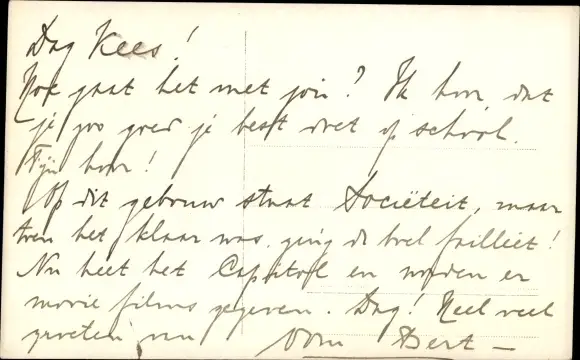 Dag Kees!
Hoe gaat het met jou? Ik hoor, dat
je zoo goed je best doet op school.
Fijn hoor!
Op dit gebouw staat Sociëteit, maar
toen het klaar was, ging de boel failliet!
Nu heet het Capitool en worden er
mooie films gegeven. Dag! Heel veel
groeten van Oom Bert —